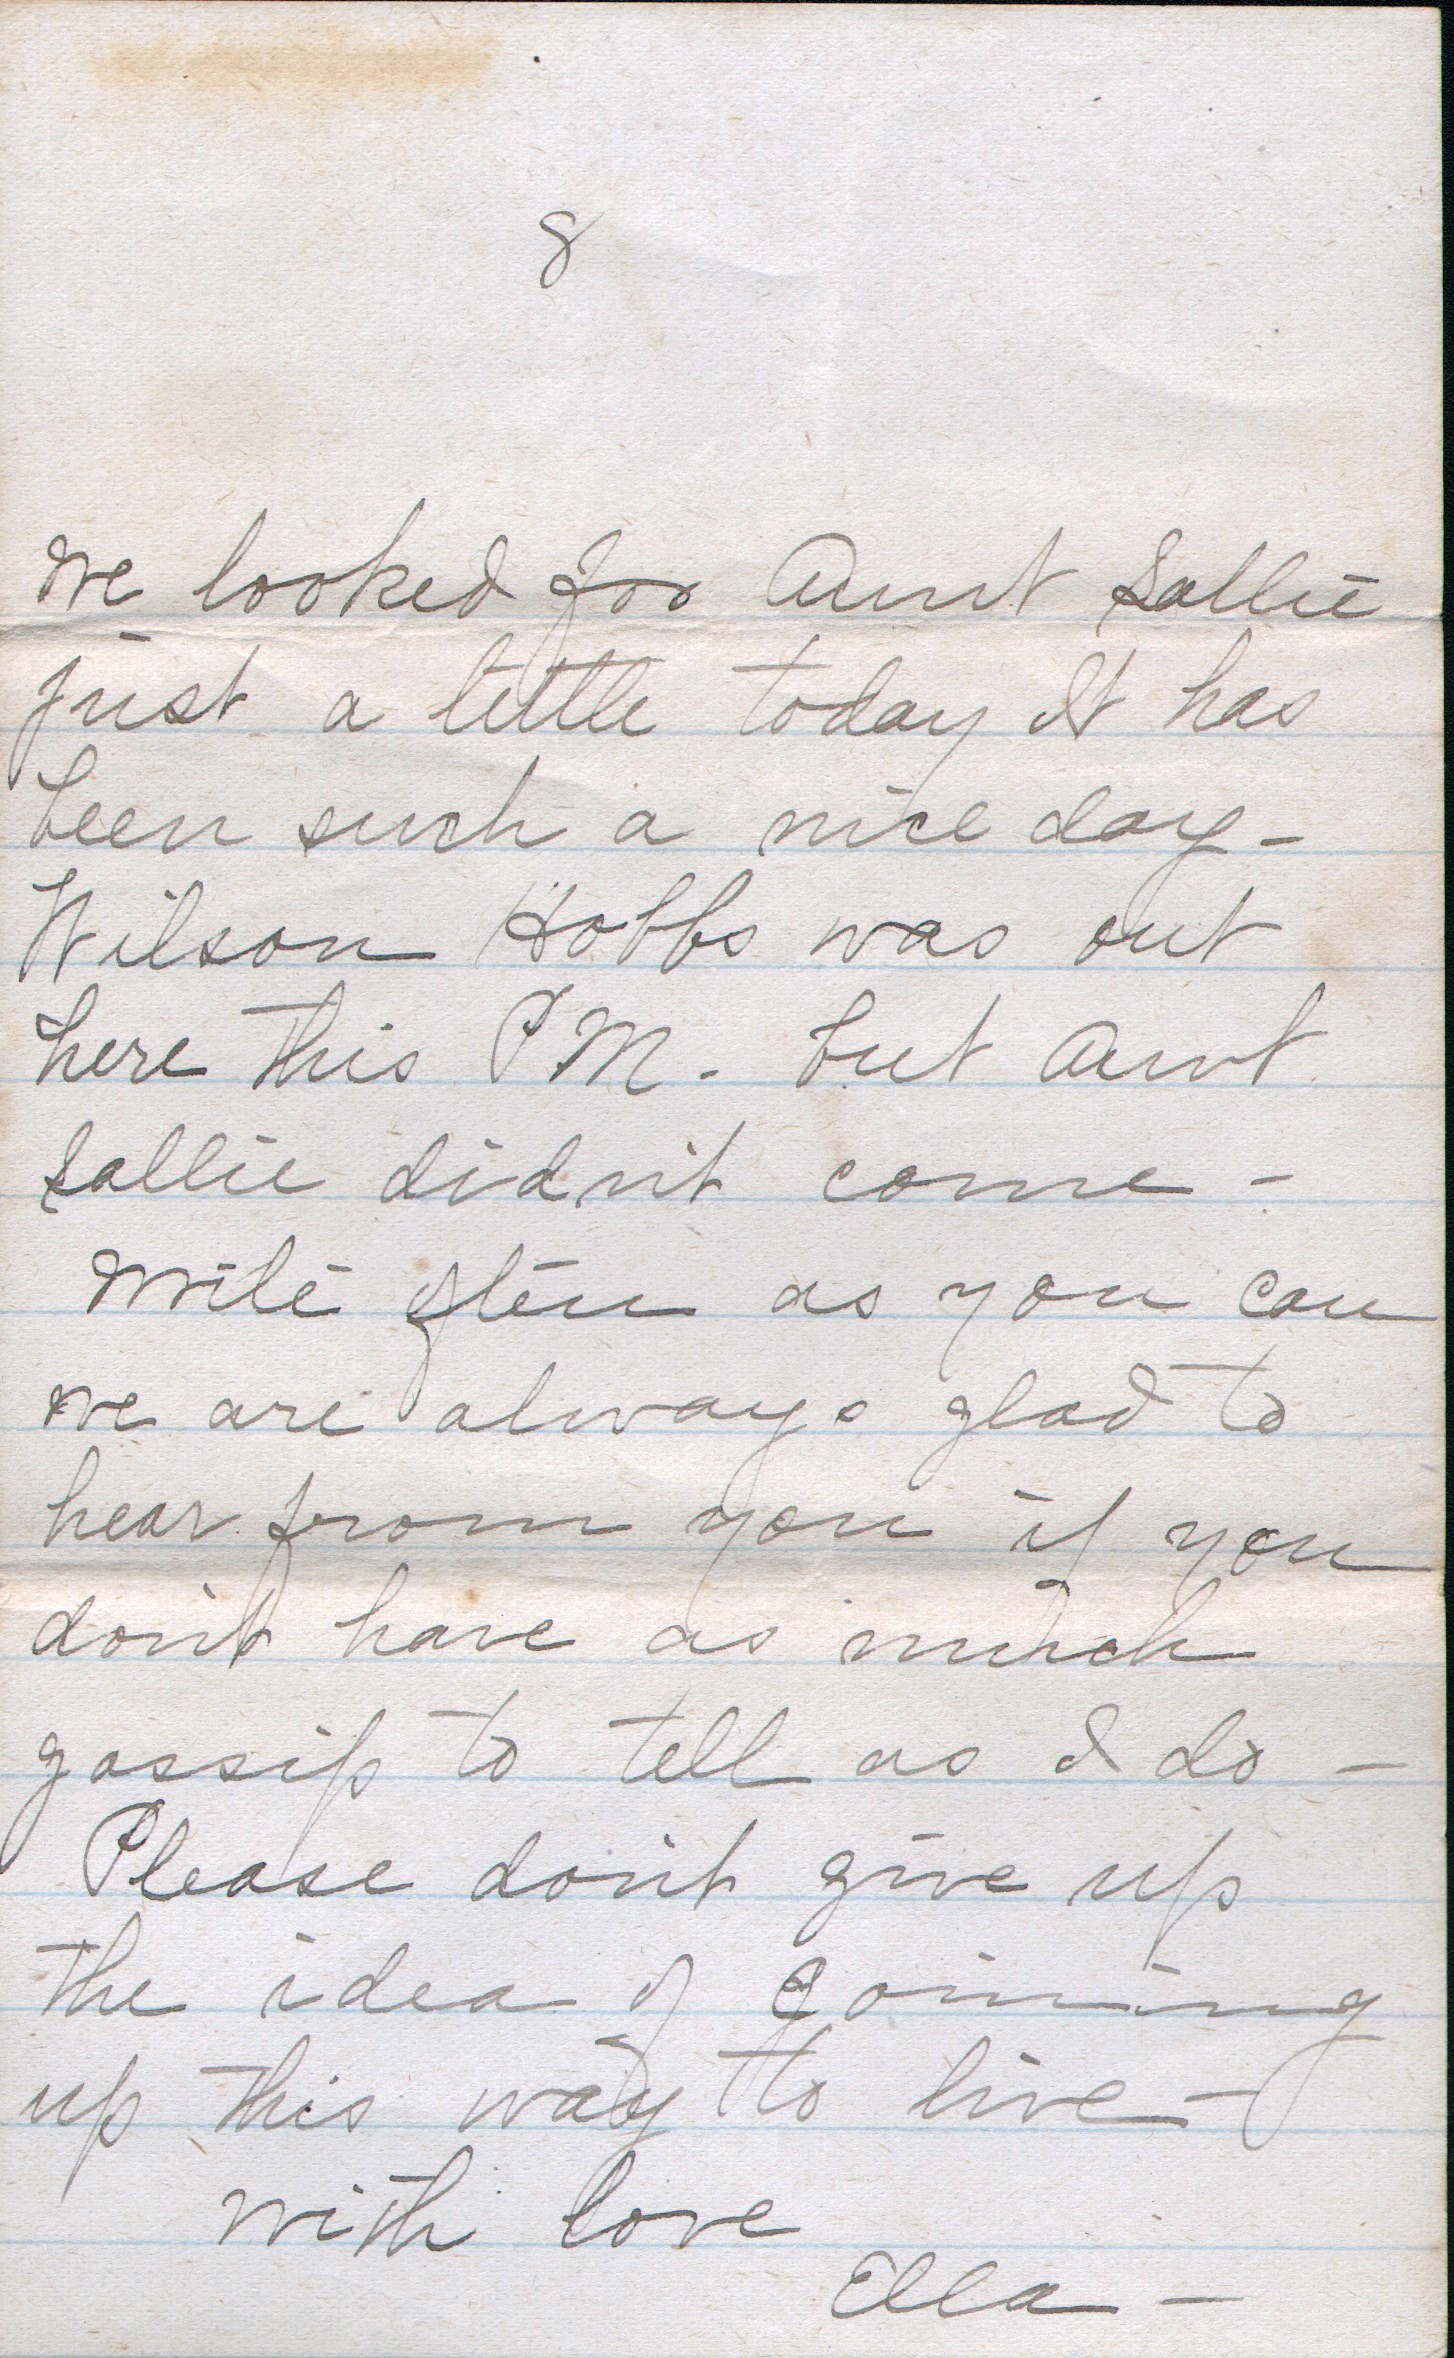 8
We looked for Aunt Sallie
just a little today It has
been such a nice day -
Wilson Hobbs was out
here this P M. but Aunt
Sallie didn't come -
Write often as you can
we are always glad to
hear from you if you
don't have as much
gossip to tell as I do -
Please don't give up
the idea of coming
up this way to live -
With love
Ella -